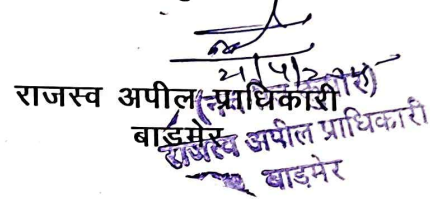 राजस्व अपील प्राधिकारी
बाड़मेर
राजस्व अपील प्राधिकारी
बाड़मेर